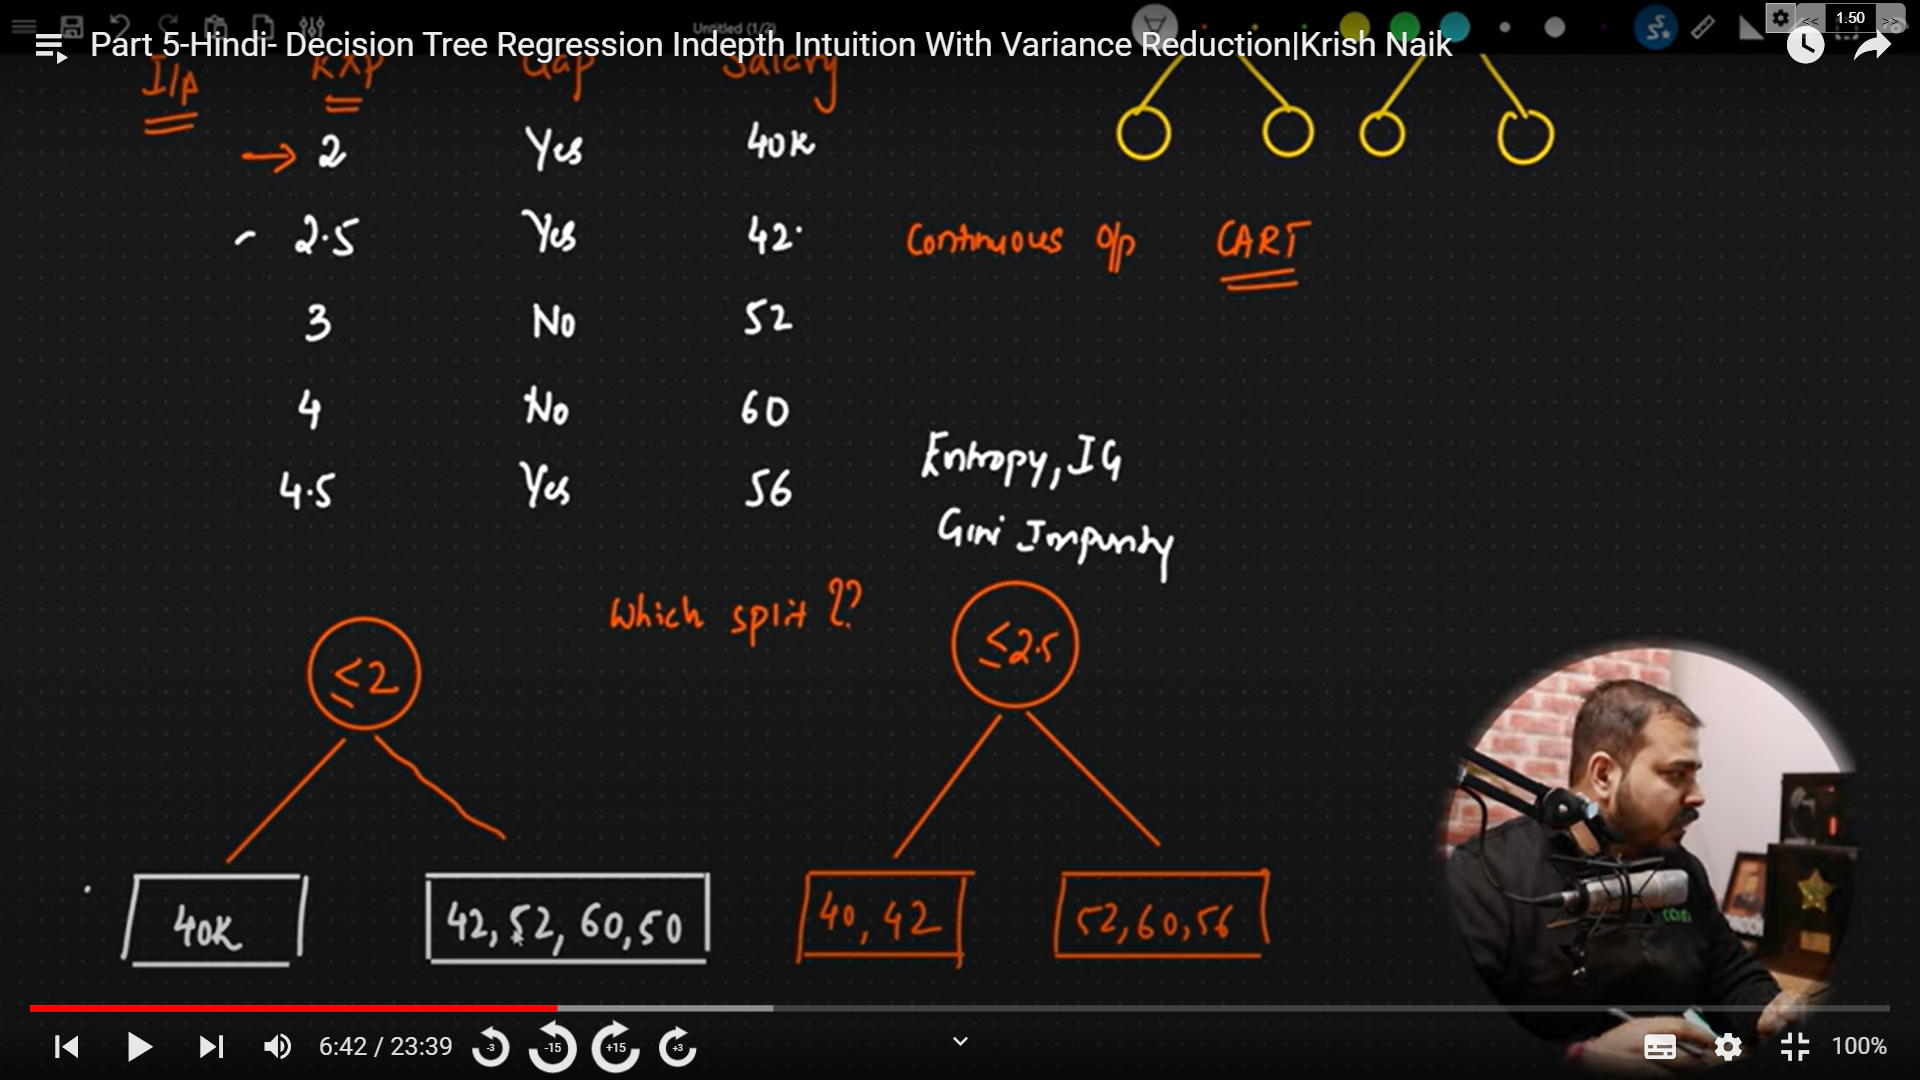 Untitled (1/2)
<< 1.50 >>
Part 5-Hindi- Decision Tree Regression Indepth Intuition With Variance Reduction|Krish Naik
I/p Exp Gap Salary
→ 2 Yes 40k
2.5 Yes 42
3 No 52
4 No 60
4.5 Yes 56
Continuous o/p CART
Entropy, IG
Gini Impurity
Which split ??
≤2
≤2.5
40k
42, 52, 60, 50
40, 42
52, 60, 56
6:42 / 23:39
-3
-15
+15
+3
100%